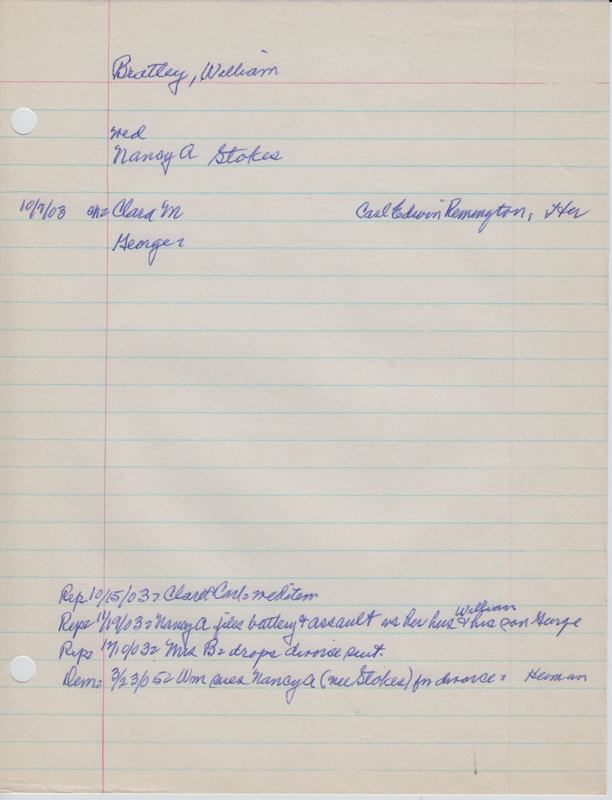 Bratley, William
Med
Nancy A Stokes
10/7/03 m= Clara M Carl Edwin Remington, Her
George=
Rep= 10/15/03= Clara & Carl= wed item
Rep= 11/19/03= Nancy A files battery & assault vs her hus William & his son George
Rep= 12/10/03= Mrs B= drops divorce suit.
Dem= 3/23/05= Wm sues Nancy A (nee Stokes) for divorce= Herman